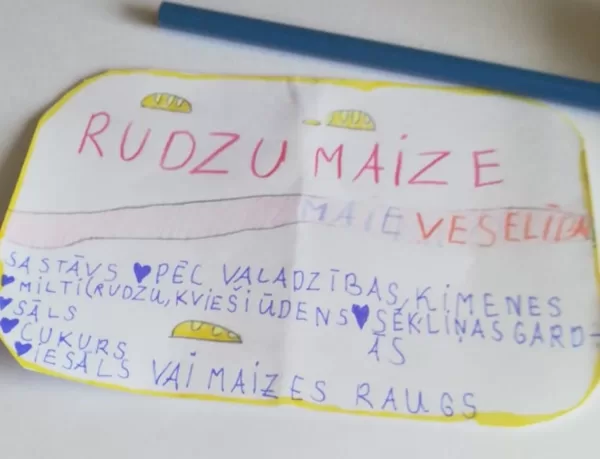 RUDZU MAIZE
MAIE VESELĪBA
SASTĀVS ♥ PĒC VAJADZĪBAS, ĶIMENES
♥ MILTI (RUDZU, KVIEŠI ŪDENS ♥ SĒKLIŅAS GARD-
♥ SĀLS ĀS
♥ CUKURS
♥ IESALS VAI MAIZES RAUGS